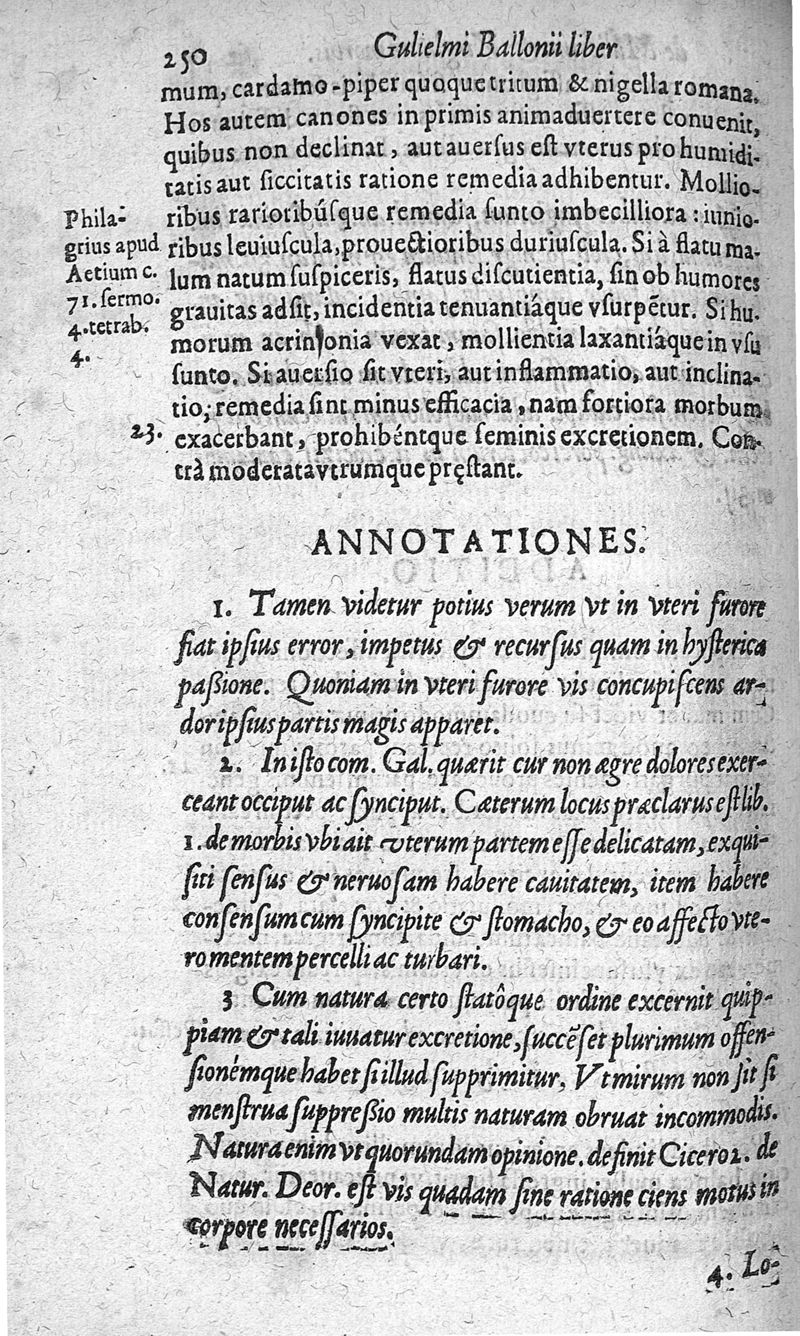 250
Gulielmi Ballonii liber
mum, cardamo-piper quoque tritum & nigella romana.
Hos autem canones in primis animaduertere conuenit,
quibus non declinat, aut auersus est vterus pro humidi-
tatis aut siccitatis ratione remedia adhibentur. Mollio-
ribus rarioribúsque remedia sunto imbecilliora: iunio-
ribus leuiuscula, prouectioribus duriuscula. Si à flatu ma-
lum natum suspiceris, flatus discutientia, sin ob humores
grauitas adsit, incidentia tenuantiáque vsurpētur. Si hu-
morum acrimonia vexat, mollientia laxantiáque in vsu
sunto. Si auersio sit vteri, aut inflammatio, aut inclina-
tio, remedia sint minus efficacia, nam fortiora morbum
exacerbant, prohibéntque seminis excretionem. Con-
trà moderata vtrumque pręstant.
Phila-
grius apud
Aetium c.
71. sermo.
4. tetrab.
4.
23.
ANNOTATIONES.
1. Tamen videtur potius verum vt in vteri furore
fiat ipsius error, impetus & recursus quam in hysterica
passione. Quoniam in vteri furore vis concupiscens ar-
dor ipsius partis magis apparet.
2. In isto com. Gal. quærit cur non ægre dolores exer-
ceant occiput ac synciput. Cæterum locus præclarus est lib.
1. de morbis vbi ait vterum partem esse delicatam, exqui-
siti sensus & neruosam habere cauitatem, item habere
consensum cum syncipite & stomacho, & eo affecto vte-
ro mentem percelli ac turbari.
3 Cum natura certo statôque ordine excernit quip-
piam & tali iuuatur excretione, succēset plurimum offen-
sionémque habet si illud supprimitur, Vt mirum non sit si
menstrua suppressio multis naturam obruat incommodis.
Natura enim vt quorundam opinione. definit Cicero 2. de
Natur. Deor. est vis quadam sine ratione ciens motus in
corpore necessarios.
4. Lo-